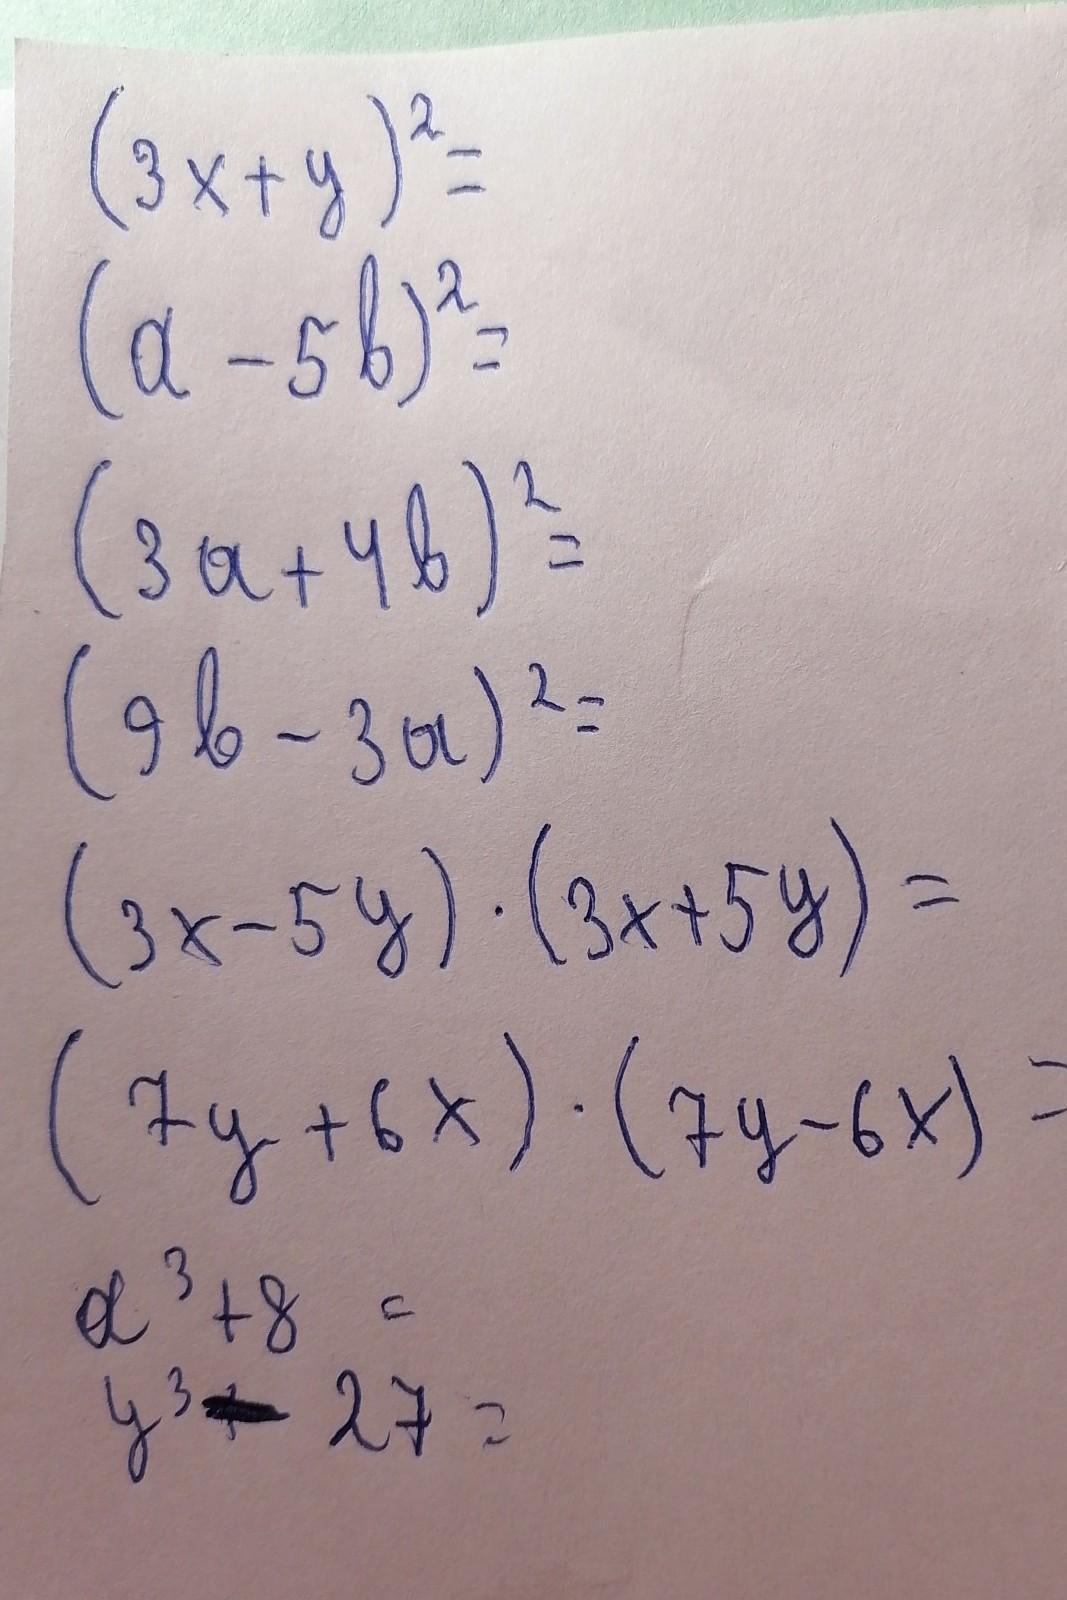 (3x+y)²=
(a-5b)²=
(3a+4b)²=
(9b-3a)²=
(3x-5y)·(3x+5y)=
(7y+6x)·(7y-6x)=
a³+8=
y³-27=